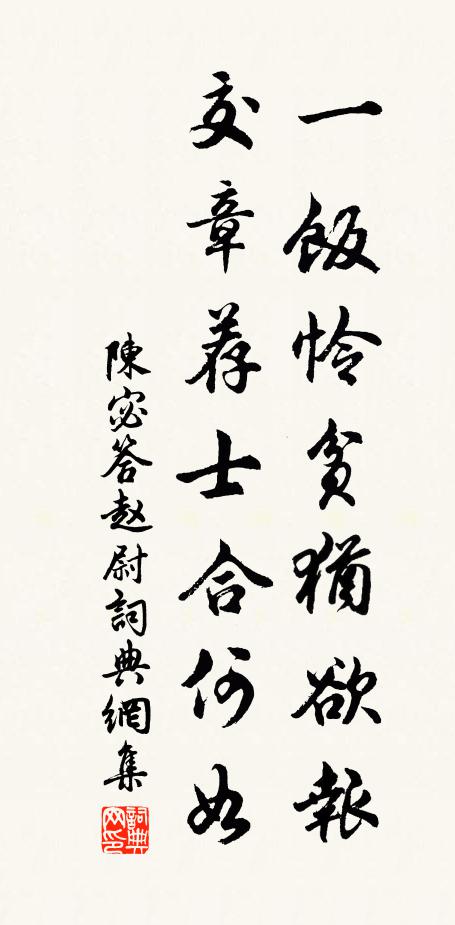 一飯怜貧猶欲報
交章荐士合何如
陳宓答赵尉詞典網集
詞典网印